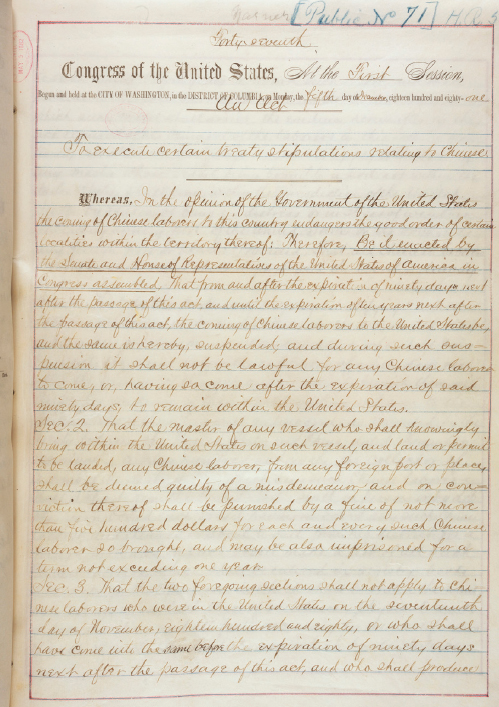 [Public No 71] H.R. 5
Forty-seventh
Congress of the United States, At the First Session,
Begun and held at the CITY OF WASHINGTON, in the DISTRICT OF COLUMBIA, on Monday, the fifth day of December, eighteen hundred and eighty-one.
An Act
To execute certain treaty stipulations relating to Chinese.
Whereas, In the opinion of the Government of the United States
the coming of Chinese laborers to this country endangers the good order of certain
localities within the territory thereof: Therefore, Be it enacted by
the Senate and House of Representatives of the United States of America in
Congress assembled, That from and after the expiration of ninety days next
after the passage of this act, and until the expiration of ten years next after
the passage of this act, the coming of Chinese laborers to the United States be,
and the same is hereby, suspended; and during such sus-
pension it shall not be lawful for any Chinese laborer
to come, or, having so come after the expiration of said
ninety days, to remain within the United States.
Sec. 2. That the master of any vessel who shall knowingly
bring within the United States on such vessel, and land or permit
to be landed, any Chinese laborer, from any foreign port or place,
shall be deemed guilty of a misdemeanor, and on con-
viction thereof shall be punished by a fine of not more
than five hundred dollars for each and every such Chinese
laborer so brought, and may be also imprisoned for a
term not exceeding one year.
Sec. 3. That the two foregoing sections shall not apply to Chi-
nese laborers who were in the United States on the seventeenth
day of November, eighteen hundred and eighty, or who shall
have come into the same before the expiration of ninety days
next after the passage of this act, and who shall produce